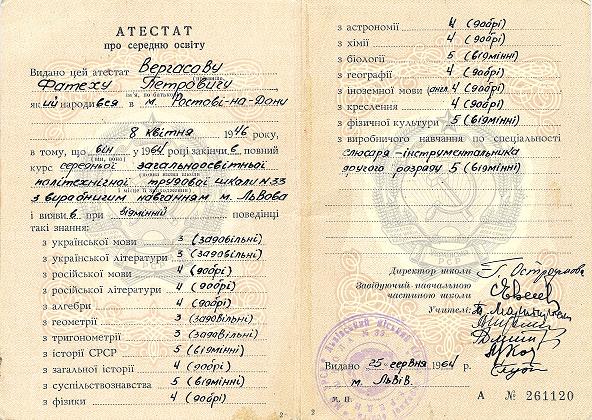 АТЕСТАТ
про середню освіту
Видано цей атестат Вергасову
Фатеху Петровичу
(прізвище,
ім'я, по батькові)
який народився в м. Ростові-на-Дону
8 квітня 1946 року,
в тому, що він у 1964 році закінчив повний
(він, вона)
курс середньої загальноосвітньої
(повна назва школи
політехнічної трудової школи N 33
і місце її знаходження)
з виробничим навчанням м. Львова
і виявив при відмінній поведінці
такі знання:
з української мови 3 (задовільні)
з української літератури 3 (задовільні)
з російської мови 4 (добрі)
з російської літератури 4 (добрі)
з алгебри 4 (добрі)
з геометрії 3 (задовільні)
з тригонометрії 3 (задовільні)
з історії СРСР 5 (відмінні)
з загальної історії 4 (добрі)
з суспільствознавства 5 (відмінні)
з фізики 4 (добрі)
2
з астрономії 4 (добрі)
з хімії 4 (добрі)
з біології 5 (відмінні)
з географії 4 (добрі)
з іноземної мови (англ. 4 (добрі)
з креслення 4 (добрі)
з фізичної культури 5 (відмінні)
з виробничого навчання по спеціальності
слюсаря-інструментальника
другого розряду 5 (відмінні)
УРСР
Директор школи Г. Остроумова
Завідуючий навчальною
частиною школи
Учителі:
Видано 25 червня 1964 р.
м. Львів.
М. П.
А № 261120
2